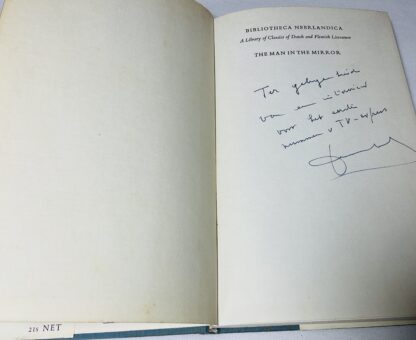 BIBLIOTHECA NEERLANDICA
A Library of Classics of Dutch and Flemish Literature
THE MAN IN THE MIRROR
Ter gelegenheid
van een interview
voor het eerste
nummer v TV-express
21s NET